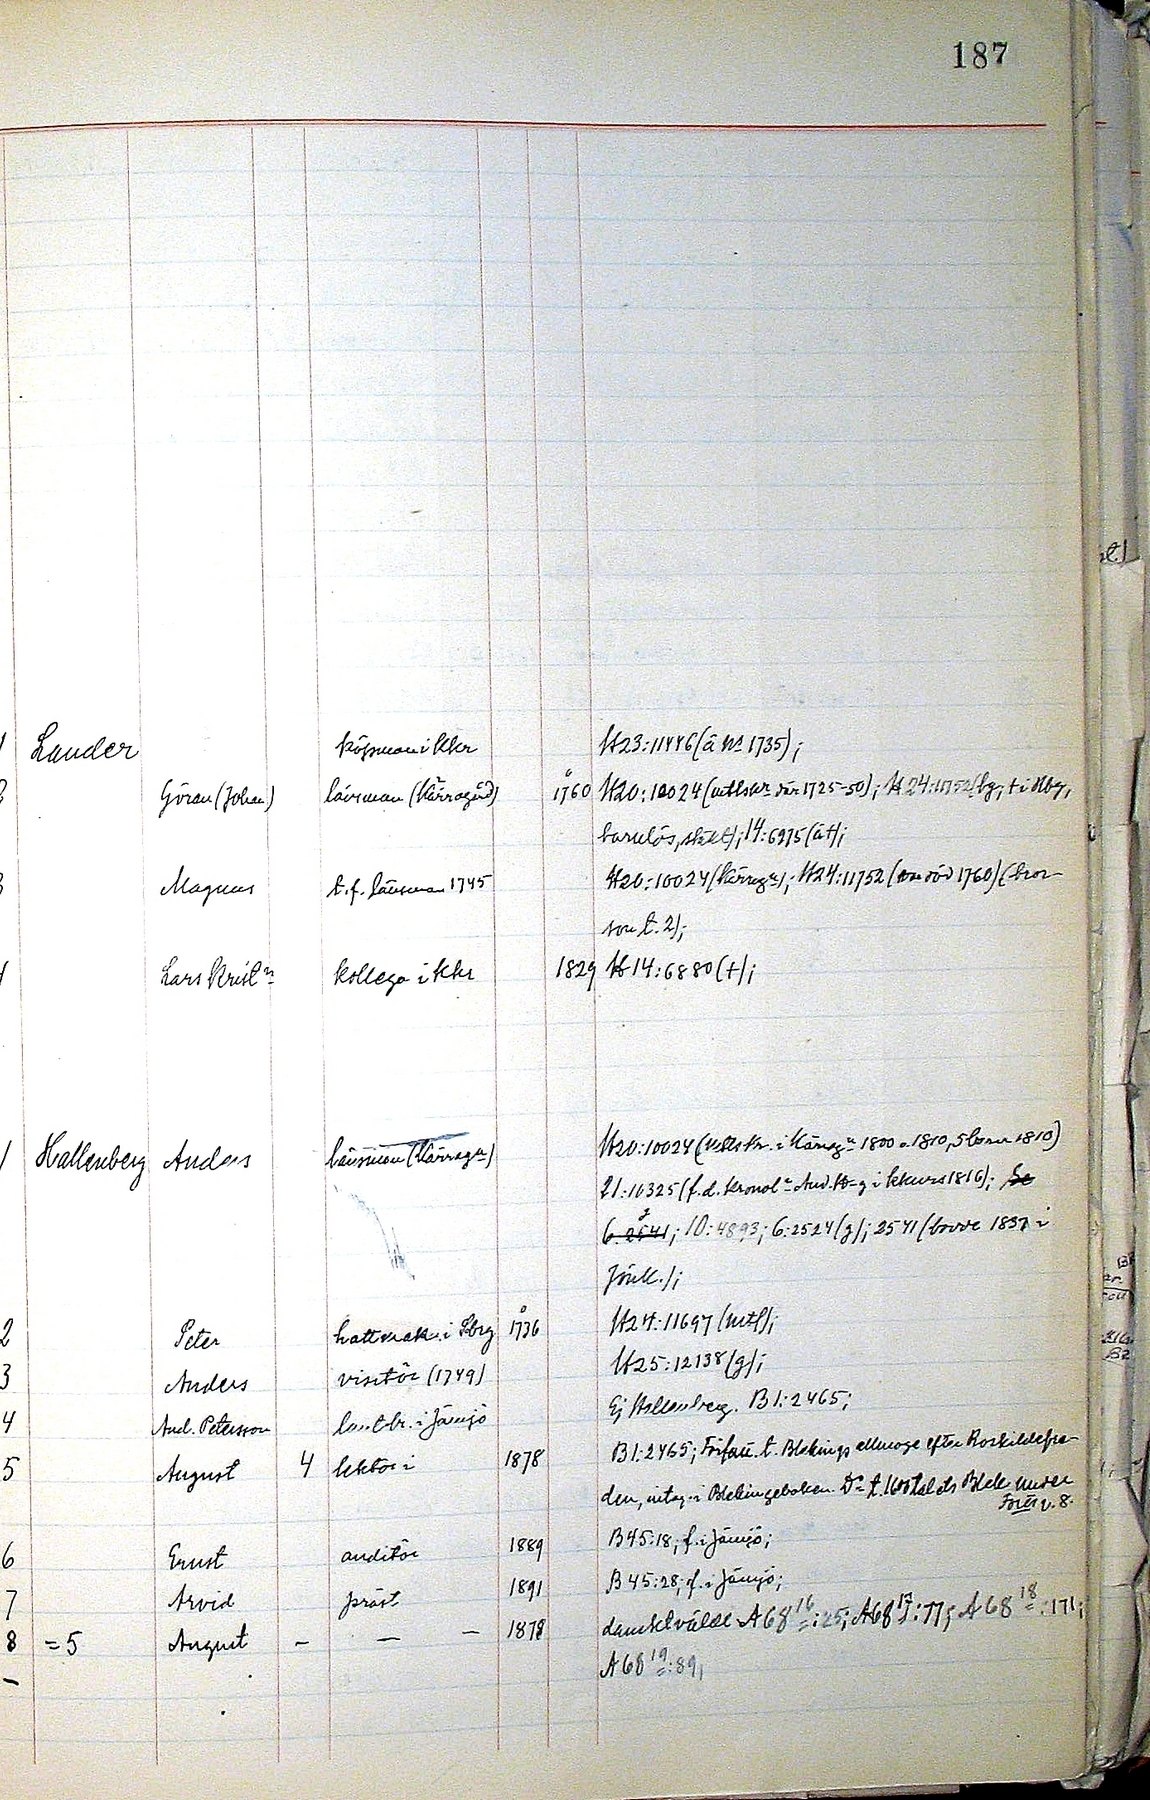 187
1 Lander köpman i Kkr H23:11446 (å nr 1735);
Göran (Johan) länsman (Kärragård) 1760 H20:10024 (mtlskr där 1725-50); H24:11752 (bg, + i Kbg,
barnlös, skild); 14:6975 (åt);
Magnus t.f. länsman 1745 H20:10024 (Kärragn); H24:11752 (död 1760) (bror-
son t. 2);
Lars Kristn kollega i Kkr 1829 H14:6880 (+);
1 Hallenberg Anders länsman (Kärragn) H20:10024 (mtlskr. i Käragn 1800 o. 1810, 5 barn 1810)
21:10325 (f.d. kronol And. H-g i kkurs 1816);
6:2541; 10:4893; 6:2524 (g); 2541 (borde 1837 i
Jönk.);
2 Peter hattmak. i Sbrg 1736 H24:11697 (mtl);
3 Anders visitör (1749) H25:12138 (g);
4 And. Petersson lantbr. i Jämjö Ej Hallenberg. B1:2465;
5 August 4 lektor i 1878 B1:2465; Förfat. t. Blekings allmoge efter Roskildefre-
den, intag. i Blekingeboken. Dr t. 1600talets Blek. under
Förer v. 8.
6 Ernst auditör 1889 B45:18; f. i Jämjö;
7 Arvid präst 1891 B45:28; f. i Jämjö;
8 =5 August - - - 1878 danskt välde A68 16:25; A68 17:77; A68 18:171;
A68 19:89,
-